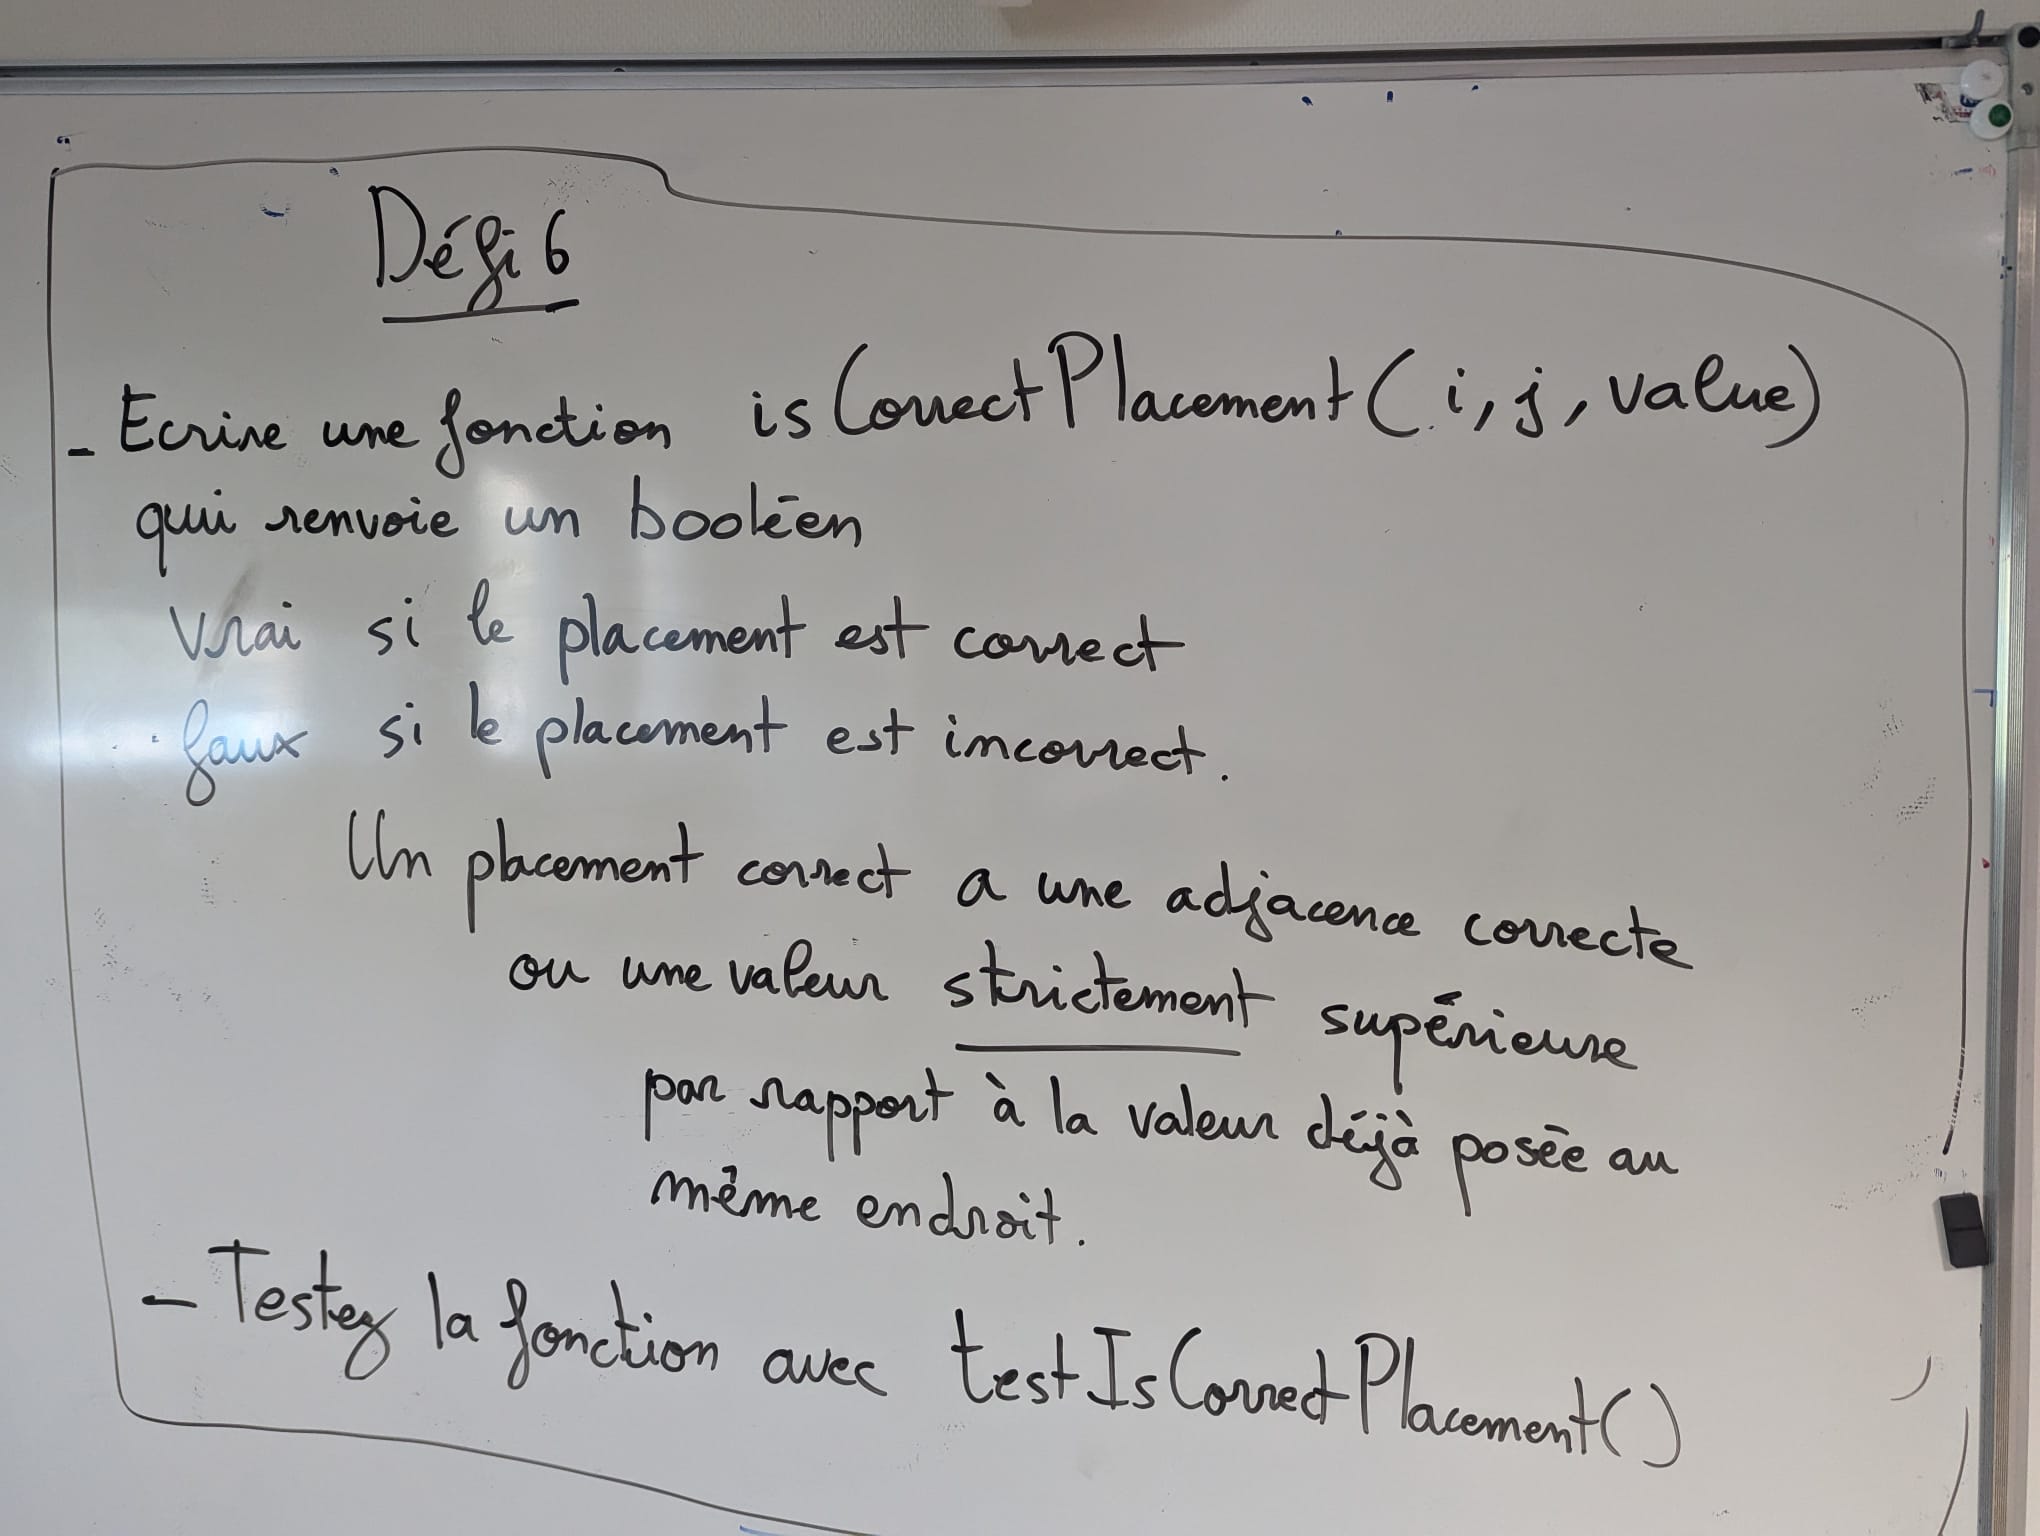 Défi 6
- Ecrire une fonction isCorrectPlacement(i, j, value)
qui renvoie un booléen
vrai si le placement est correct
faux si le placement est incorrect.
Un placement correct a une adjacence correcte
ou une valeur strictement supérieure
par rapport à la valeur déjà posée au
même endroit.
- Testez la fonction avec testIsCorrectPlacement()